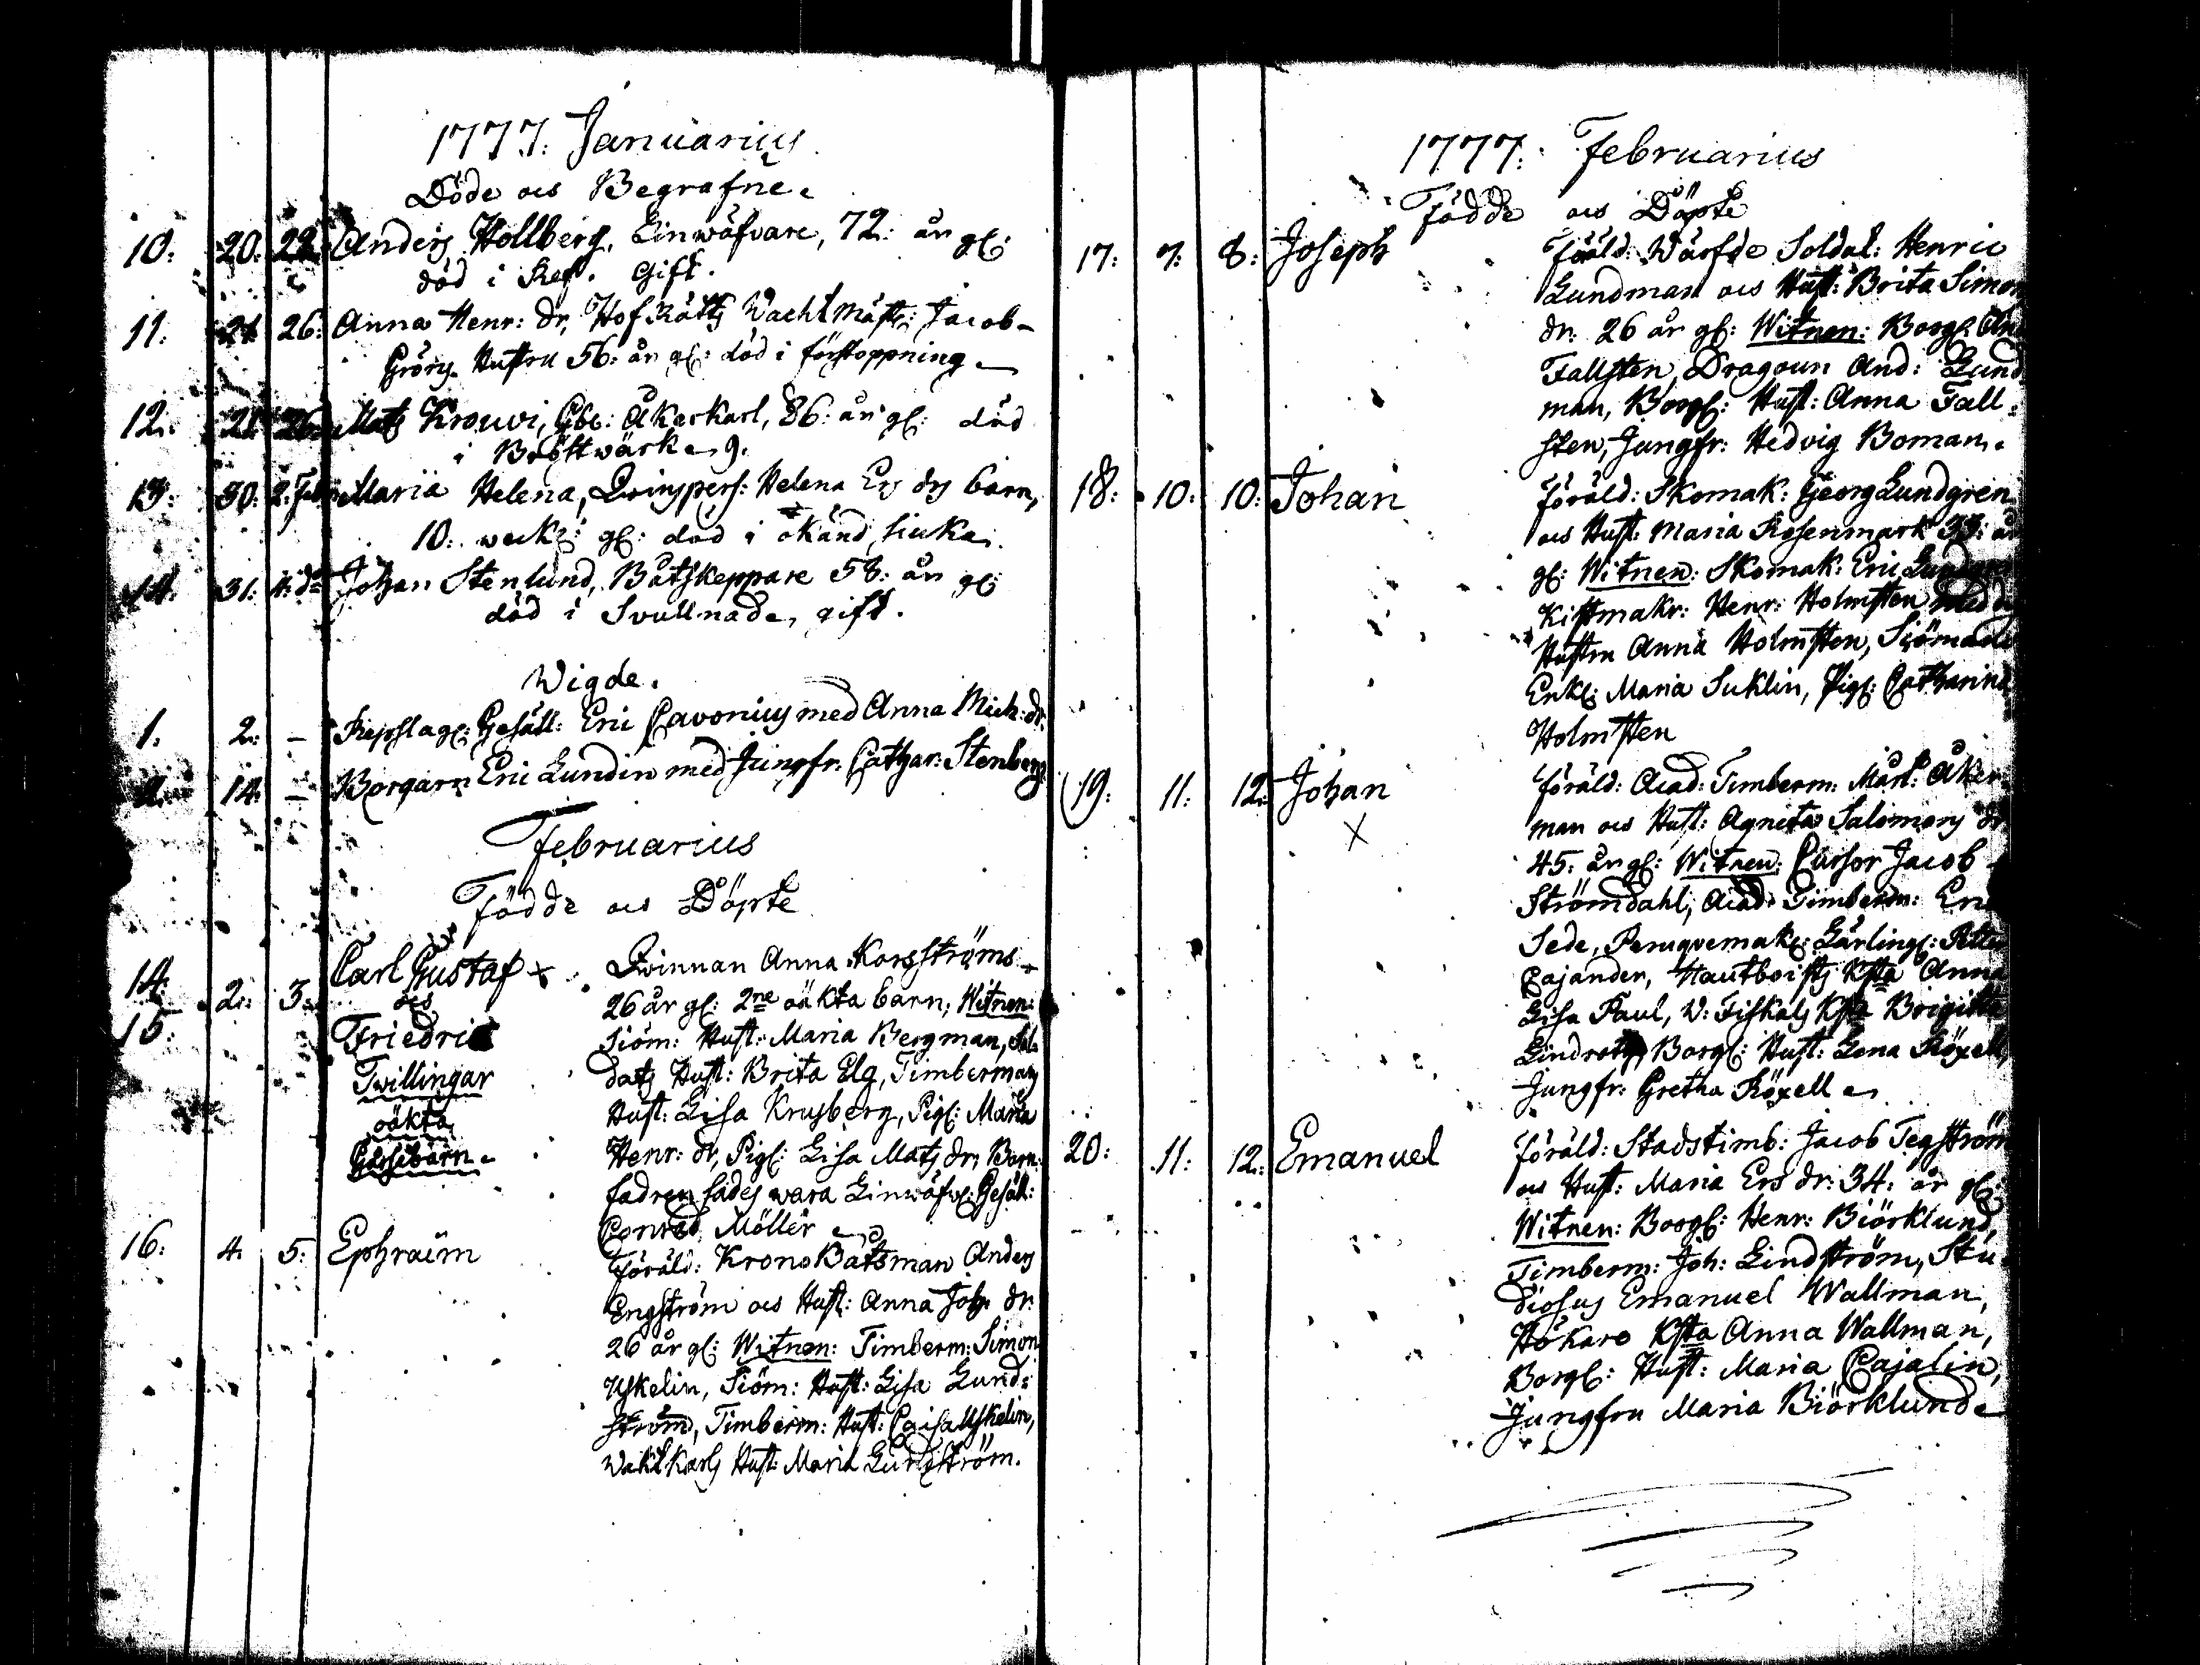 1777. Januarius
Döde och Begrafne.
10: 20: 22 Anders Hollberg, Linwäfvare, 72: år gl:
död i Gift.
11: 21 26: Anna Henr: dr, HofRätts Wachtmäst: Jacob
Hustru 56: år gl: död i förstoppning
12: 21 26 Mats Krouvi, Gbl: Åkerkarl, 86: år gl: död
i Bröstwärk
13: 30: 2: Feb Maria Helena, Qvinspers: Helena Ers drs barn,
10: weck: gl: död i okänd siuka
14: 31: 4: do Johan Stenlund, Båtskeppare 58: år gl:
död i Svullnad, gift.
Wigde.
1. 2: – Repslag: Gesäll: Eric Cavonius med Anna Mich: dr.
2. 14: – Borgarn Eric Lundin med Jungfr: Cathar: Stenberg
Februarius
Födde och Döpte
14. och 15. 2: 3: Carl Gustaf x
och
Friedric
Twillingar
oäkta
Gossebarn
Qvinnan Anna Korsströms
26 år gl: 2ne oäkta barn, Witnen:
Siöm: Hust: Maria Bergman, Sol-
dats Hust: Brita Elg, Timbermans
Hust: Lisa Krusberg, Pig: Maria
Henr: dr, Pig: Lisa Mats dr, Barn:
fadren sades wara Linwäfv: Gesäll:
Conrad Möller
16: 4: 5: Ephraim
Föräld: Krono Båtsman Anders
Engström och Hust: Anna Joh: dr:
26 år gl: Witnen: Timberm: Simon
Uskelin, Siöm: Hust: Lisa Lund-
ström, Timberm: Hust: Caisa Uskelin,
Waktkarls Hust: Maria Lundström.
1777: Februarius
Födde och Döpte
17: 7: 8: Joseph
Föräld: Wärfde Soldat: Henric
Lundman och Hust: Brita Simon
dr: 26 år gl: Witnen: Borg: And
Fallsten, Dragoun And: Lund
man, Borg: Hust: Anna Fall-
sten, Jungfr: Hedvig Boman.
18: 10: 10: Johan
Föräld: Skomak: Georg Lundgren
och Hust: Maria Rosenmark 33: år
gl: Witnen: Skomak: Eric Lundgren
Kistmakr: Henr: Holmsten med
Hustru Anna Holmsten, Siömans
Enkl: Maria Suklin, Pig: Catharina
Holmsten
19: 11: 12: Johan
x
Föräld: Acad: Timberm: Mårt: Åker
man och Hust: Agneta Salomons dr
45: år gl: Witnen: Cursor Jacob
Strömdahl, Acad: Timberm: Eric
Sede, Peruqvemak: Lärling: Petter
Cajander, Hautboists Ksta Anna
Lisa Paul, V: Fiskals Ksta Brigitta
Lindroth, Borg: Hust: Lena Röxell,
Jungfr: Gretha Röxell
20: 11: 12: Emanuel
Föräld: Stadstimb: Jacob Tegström
och Hust: Maria Ers dr: 34: år gl:
Witnen: Borg: Henr: Biörklund,
Timberm: Joh: Lindström, Stu
diosus Emanuel Wallman,
Hökare Ksta Anna Wallman,
Borg: Hust: Maria Cajalin,
Jungfru Maria Biörklund